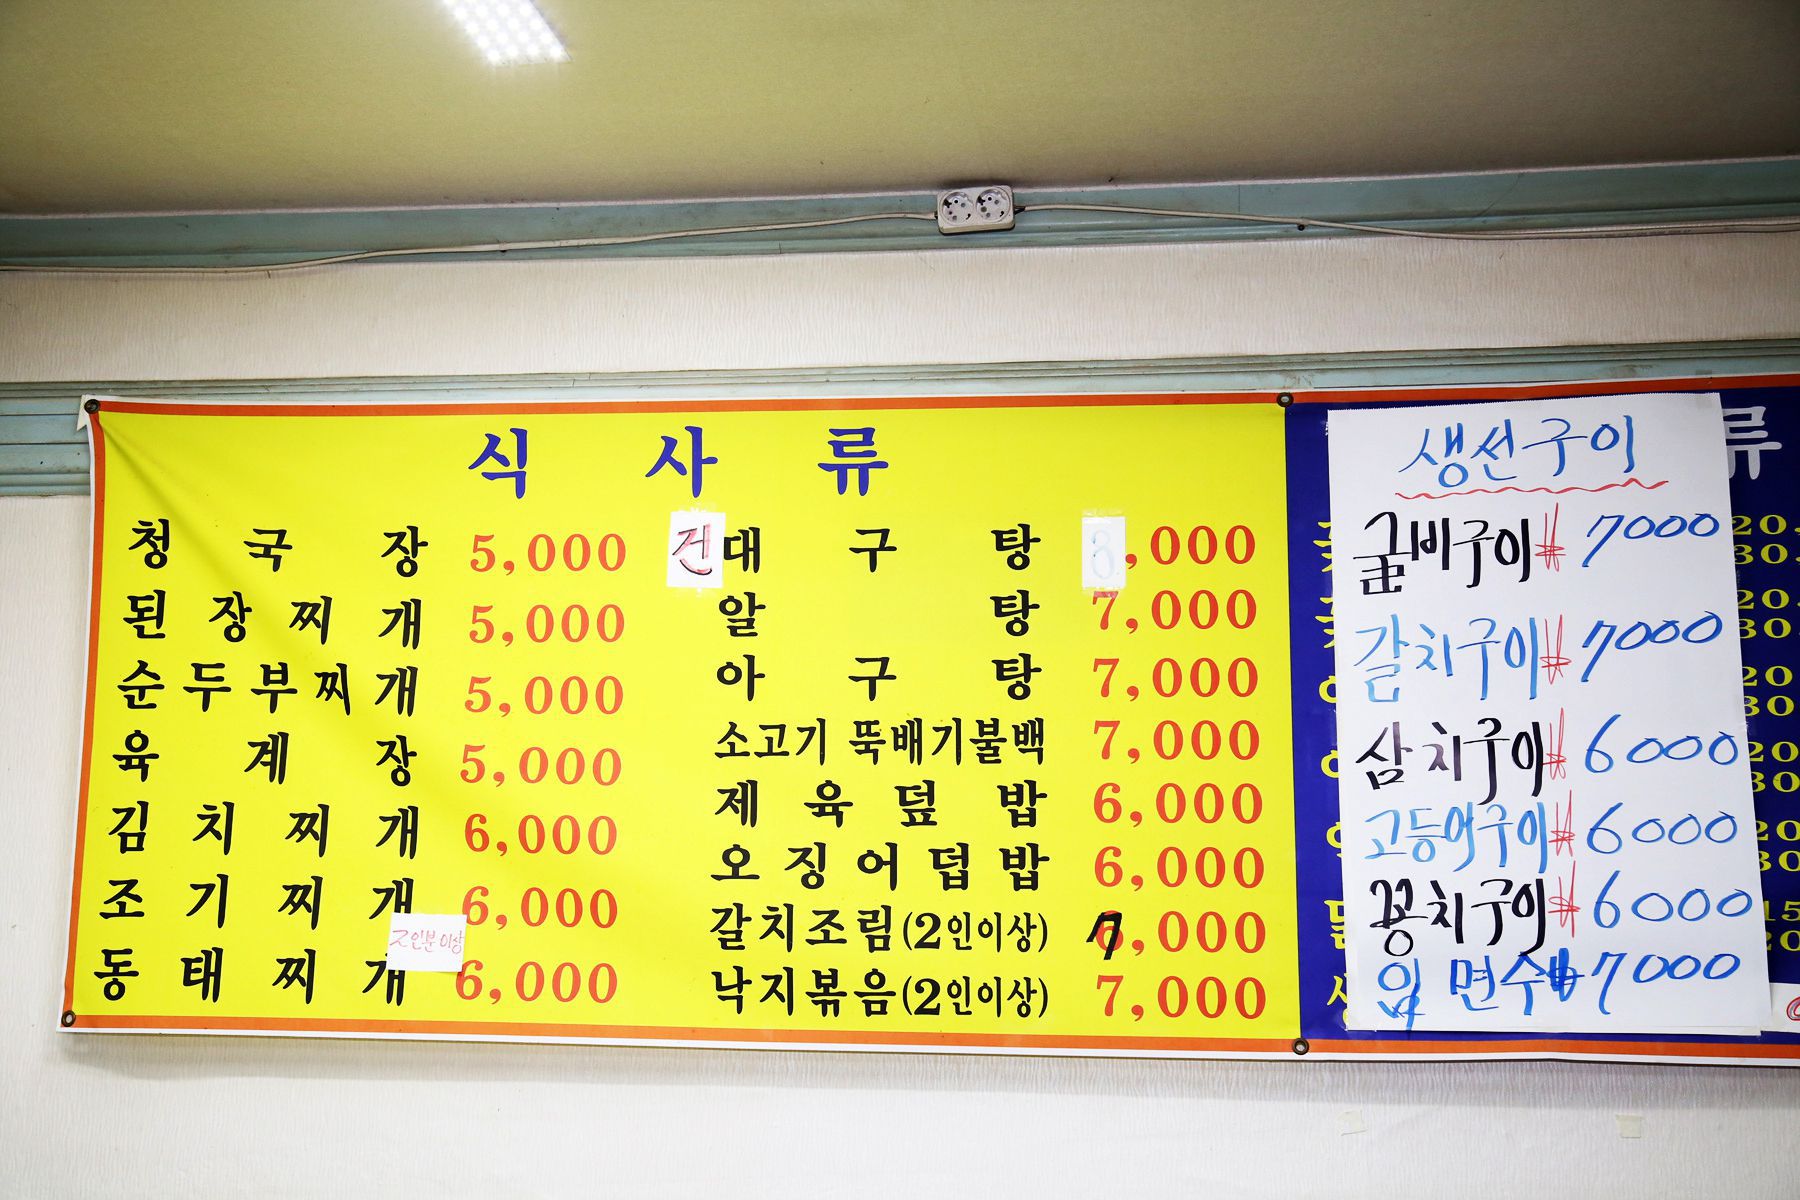 식 사 류
청 국 장 5,000
된 장 찌 개 5,000
순 두 부 찌 개 5,000
육 계 장 5,000
김 치 찌 개 6,000
조 기 찌 개 6,000
2인분이상
동 태 찌 개 6,000
건대 구 탕 8,000
알 탕 7,000
아 구 탕 7,000
소고기 뚝배기불백 7,000
제 육 덮 밥 6,000
오 징 어 덥 밥 6,000
갈치조림(2인이상) 7,000
낙지볶음(2인이상) 7,000
류
생선구이
굴비구이 ₩ 7000
갈치구이 ₩ 7000
삼치구이 ₩ 6000
고등어구이 ₩ 6000
꽁치구이 ₩ 6000
임면수 ₩ 7000